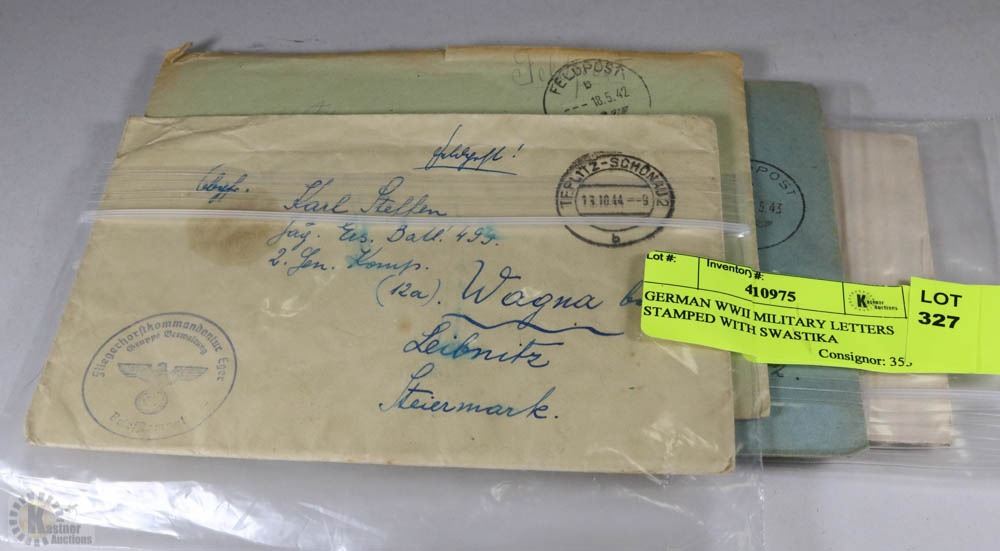 FELDPOST
b
--- 18.5.42
Feldpost!
TEPLITZ-SCHÖNAU 2
13.10.44 --9
b
Karl Steffen
Jäg. Ers. Batl. 495.
2. Gen. Komp.
(12a). Wagna
Leibnitz
Steiermark.
Fliegerhorstkommandantur Eger
Gruppe Verwaltung
Briefstempel
5.43
Lot #:
Inventory #:
410975
Kastner
Auctions
GERMAN WWII MILITARY LETTERS
STAMPED WITH SWASTIKA
Consignor: 35
LOT
327
Kastner
Auctions